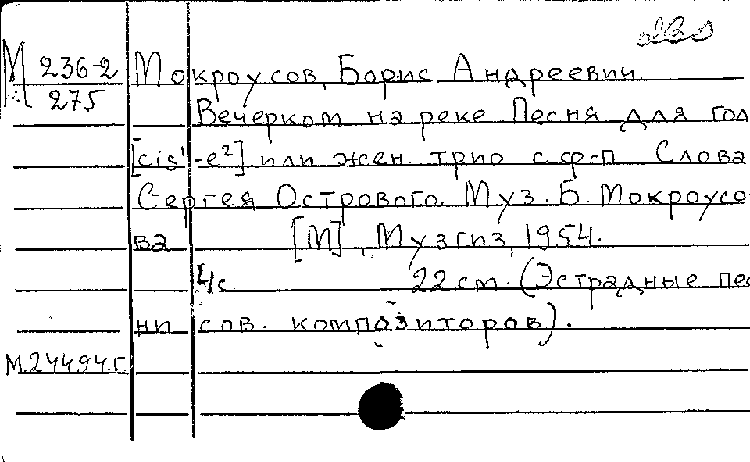 М 236-2 Мокроусов, Борис Андреевич
275 Вечерком на реке Песня для гол
[cis¹-e²] или жен. трио с ф-п Слова
Сергея Острового. Муз. Б. Мокроусо
ва [М], Музгиз, 1954.
4с 22 см. (Эстрадные пес
ни сов. композиторов).
М.24494г.